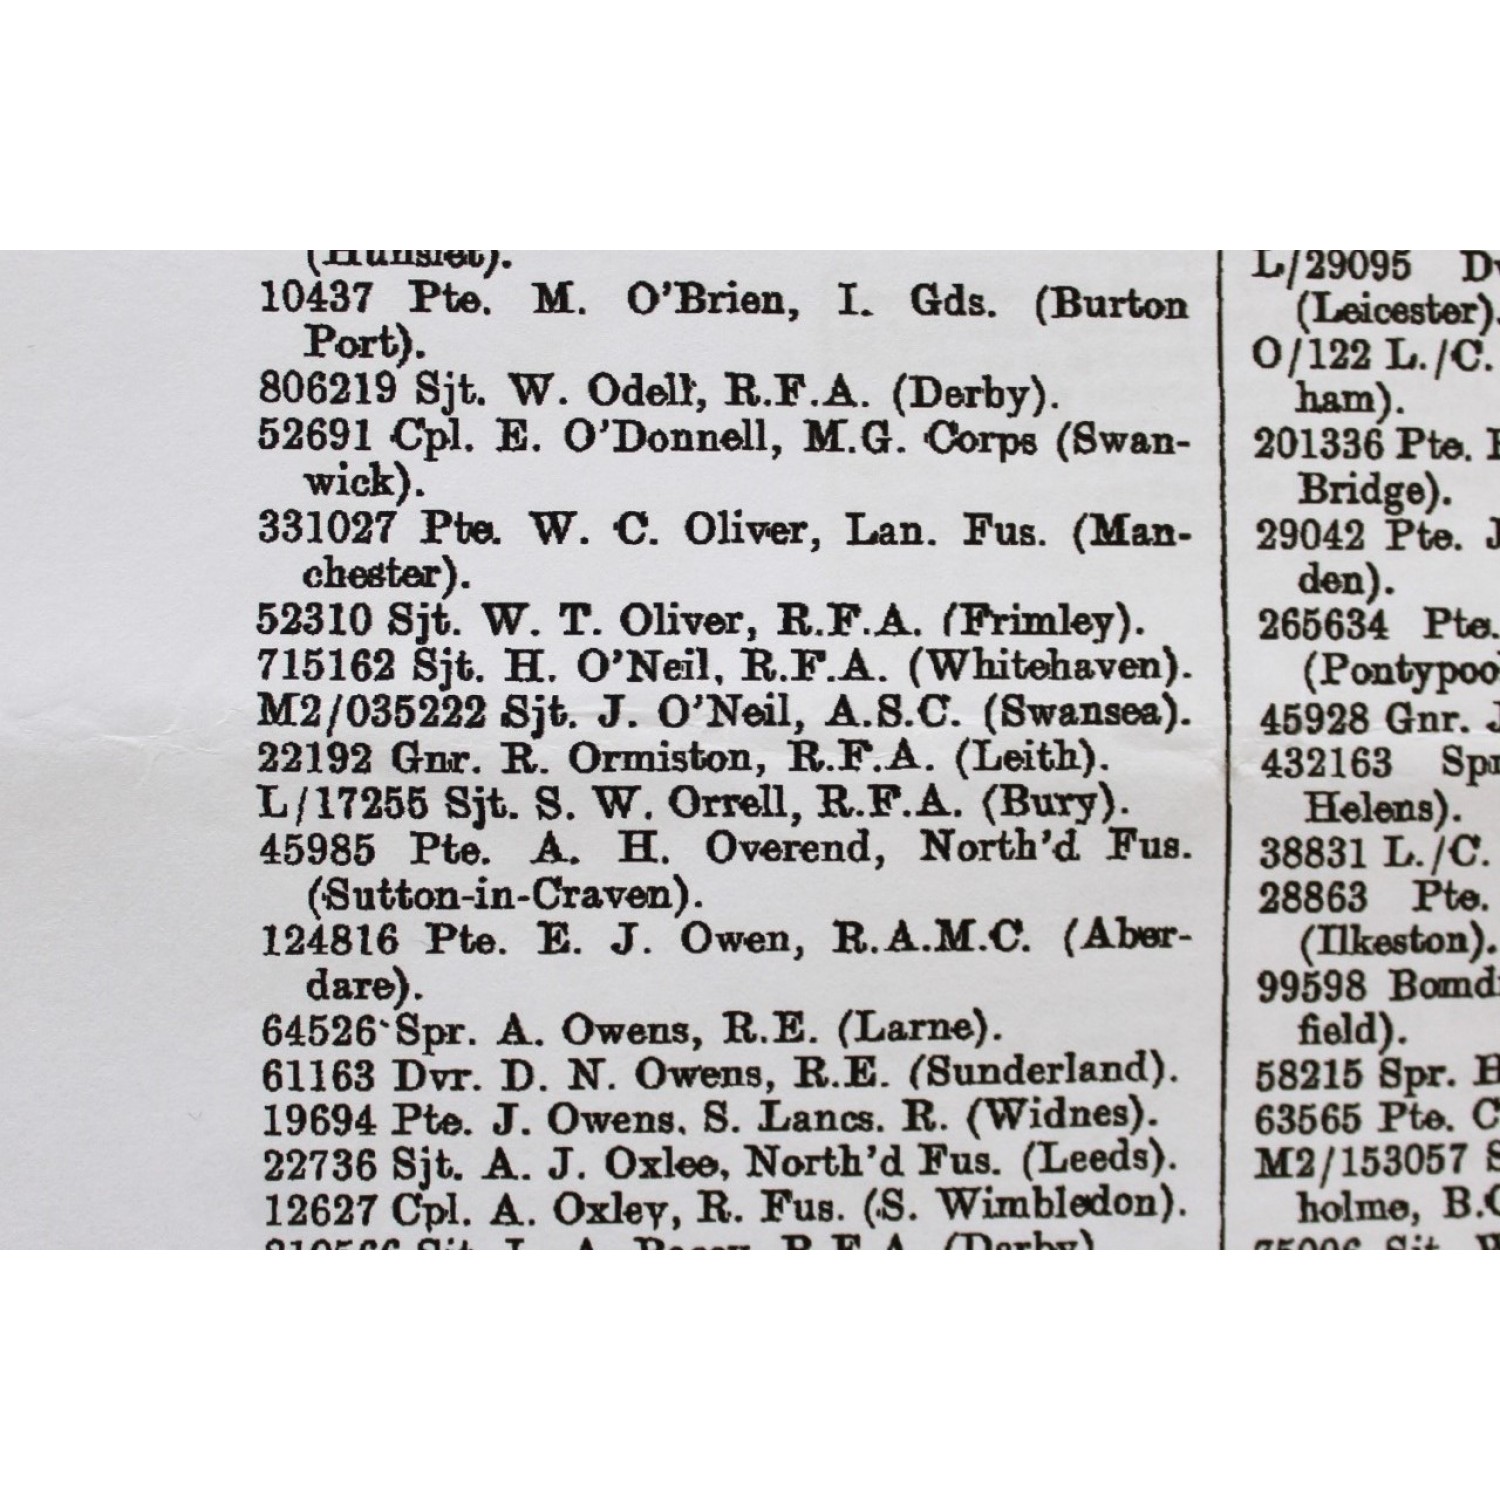 (Hunslet).
10437 Pte. M. O'Brien, I. Gds. (Burton
Port).
806219 Sjt. W. Odell, R.F.A. (Derby).
52691 Cpl. E. O'Donnell, M.G. Corps (Swan-
wick).
331027 Pte. W. C. Oliver, Lan. Fus. (Man-
chester).
52310 Sjt. W. T. Oliver, R.F.A. (Frimley).
715162 Sjt. H. O'Neil, R.F.A. (Whitehaven).
M2/035222 Sjt. J. O'Neil, A.S.C. (Swansea).
22192 Gnr. R. Ormiston, R.F.A. (Leith).
L/17255 Sjt. S. W. Orrell, R.F.A. (Bury).
45985 Pte. A. H. Overend, North'd Fus.
(Sutton-in-Craven).
124816 Pte. E. J. Owen, R.A.M.C. (Aber-
dare).
64526 Spr. A. Owens, R.E. (Larne).
61163 Dvr. D. N. Owens, R.E. (Sunderland).
19694 Pte. J. Owens, S. Lancs. R. (Widnes).
22736 Sjt. A. J. Oxlee, North'd Fus. (Leeds).
12627 Cpl. A. Oxley, R. Fus. (S. Wimbledon).
R.F.A. (Derby)
L/29095
(Leicester).
O/122 L./C.
ham).
201336 Pte.
Bridge).
29042 Pte. J
den).
265634 Pte.
(Pontypool
45928 Gnr. J
432163 Spr
Helens).
38831 L./C.
28863 Pte.
(Ilkeston).
99598 Bomdr
field).
58215 Spr. H
63565 Pte. C
M2/153057 S
holme, B.C